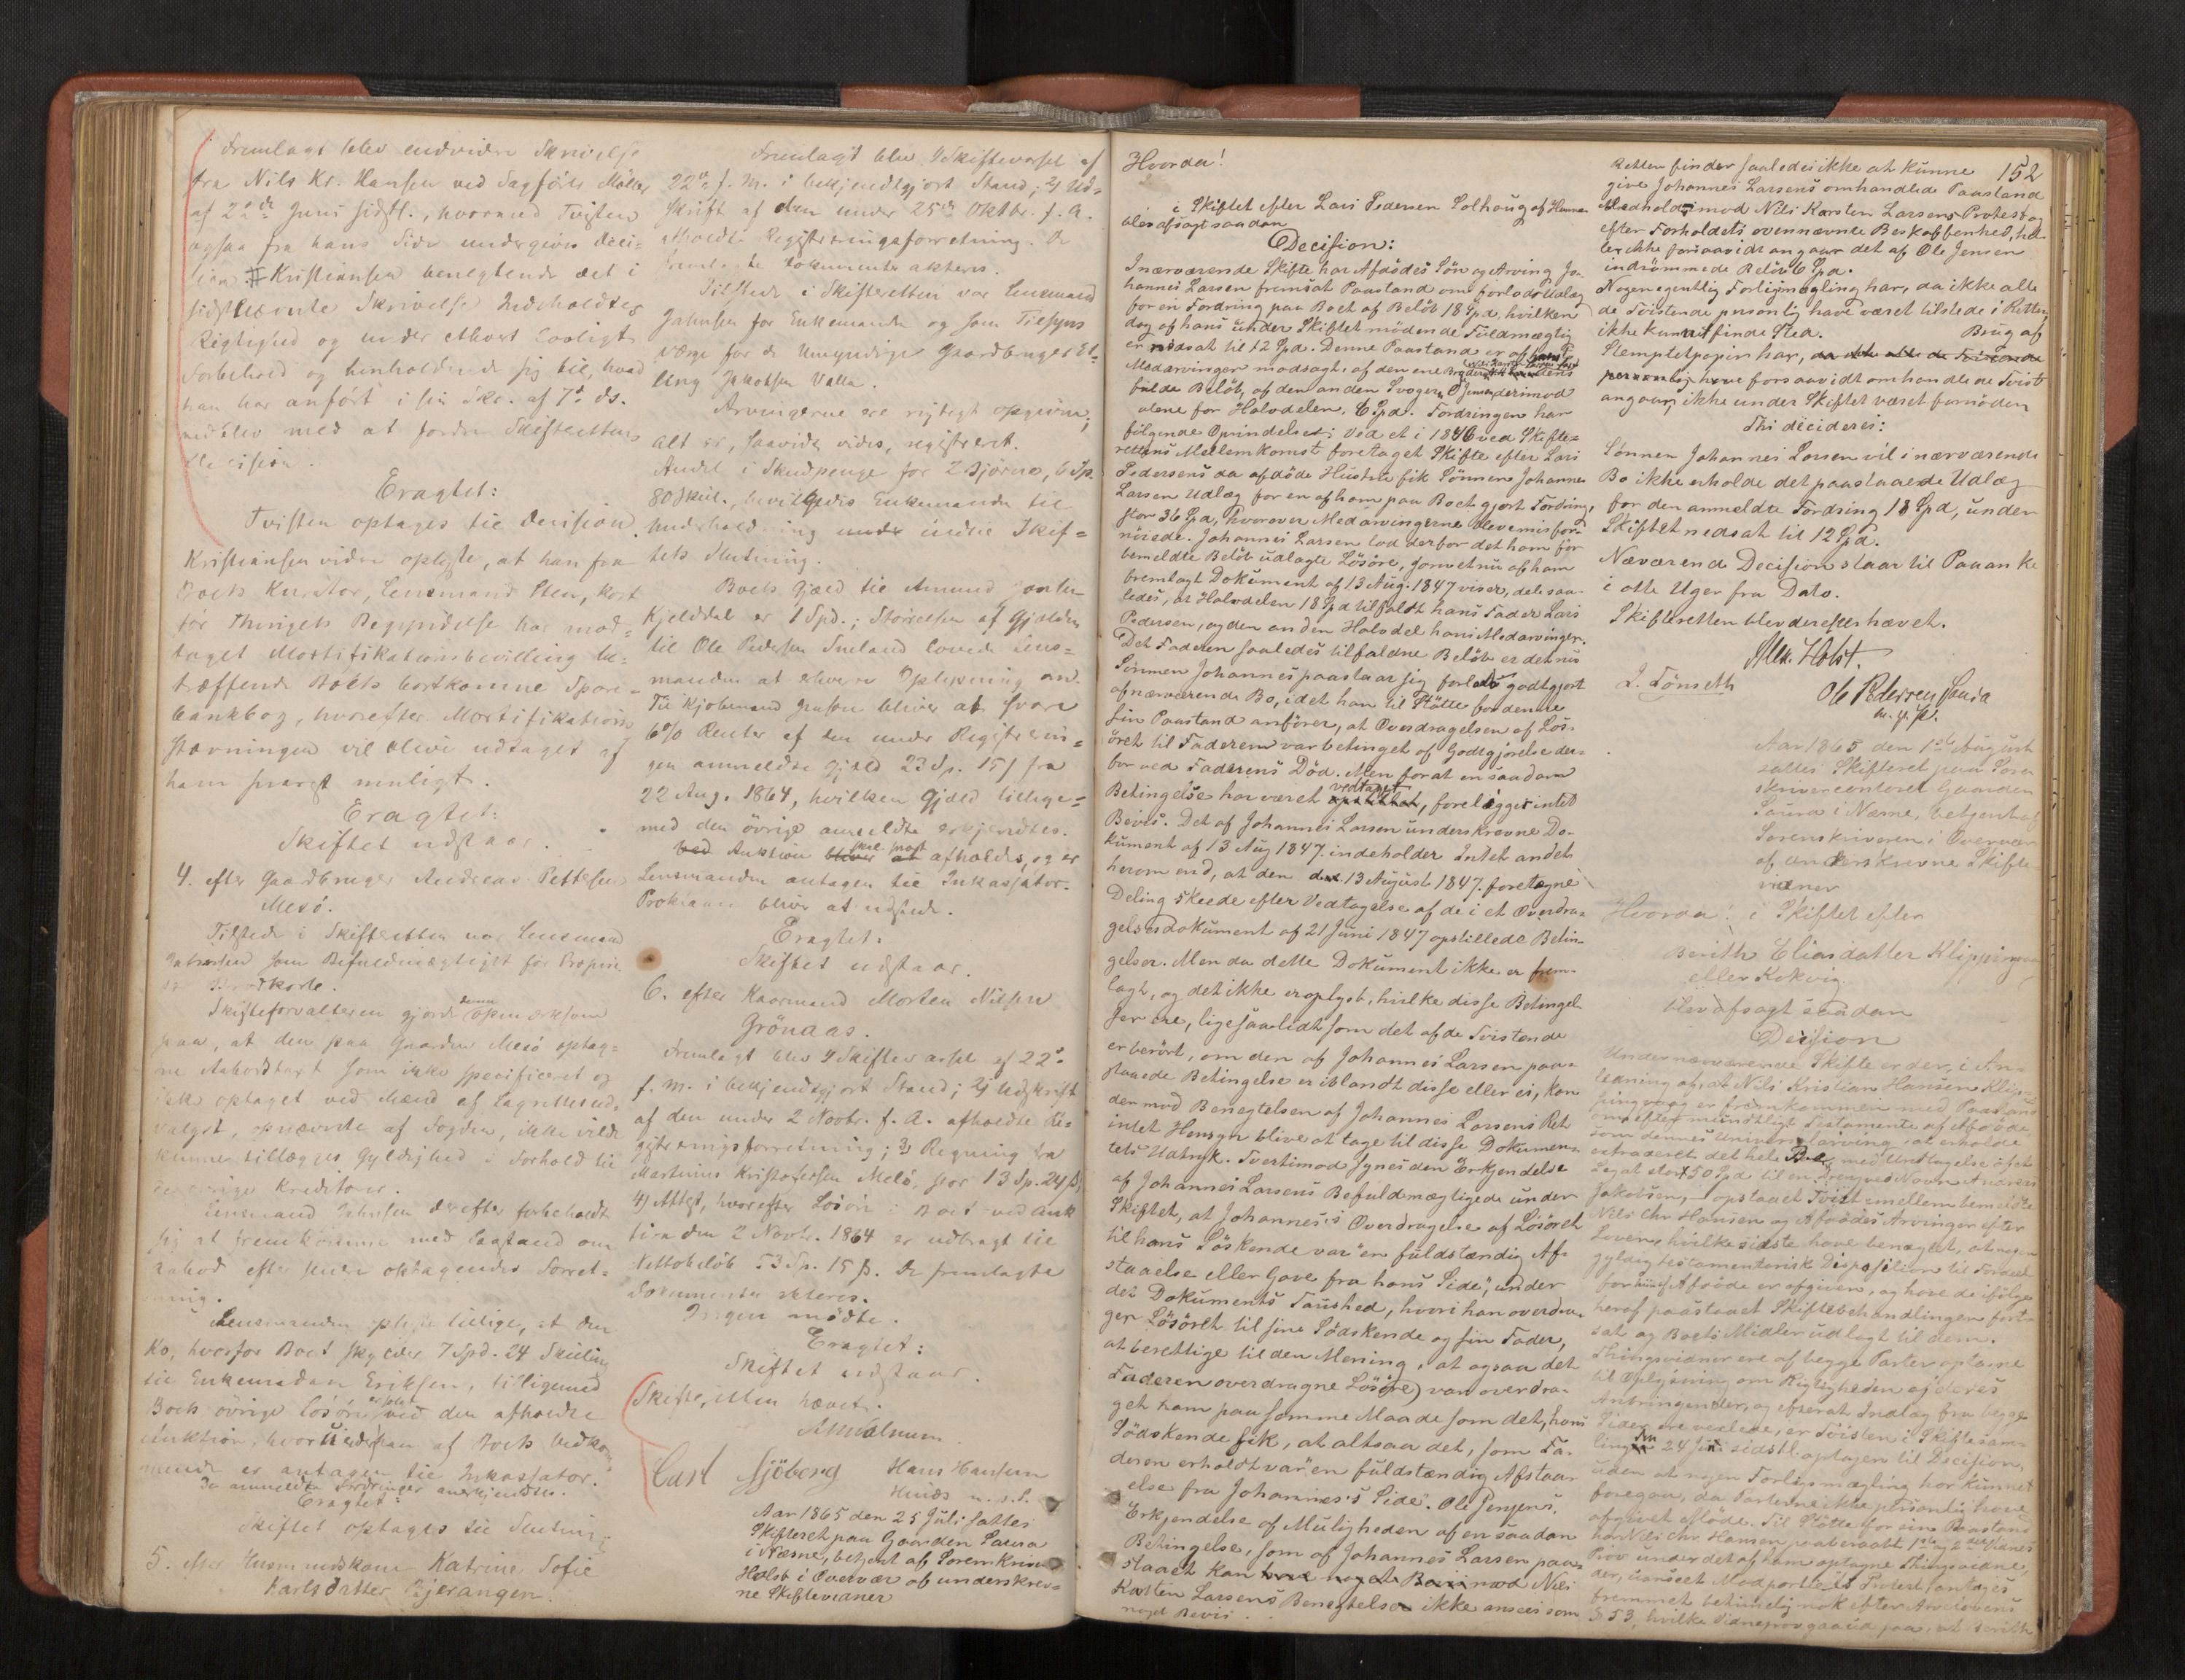 Fremlagt blev endvidere Skrivelse
fra Nils Kr. Hansen ved Sagfører Møller
af 2den Juni sidstl., hvormed Tvisten
ogsaa fra hans Side undergives Deci-
sion. Kristiansen benegtende det i
sidstnævnte Skrivelse Indeholdtes
Rigtighed og under ethvert lovligt
Forbehold og henholdende sig til, hvad
han har anført i sin Skr. af 7de ds.
med at fordre Skifterettens
Decision.
Eragtet:
Tvisten optages til Decision.
Kristiansen videre oplyste, at han fra
Boets Kurator, Lensmand Sten, kort
før Thingets Begyndelse har mod-
taget Mortifikationsbevilling be-
træffende Boets bortkomne Spare-
bankbog, hvorefter Mortifikations
stævningen vil blive udtaget af
ham snarest muligt.
Eragtet:
Skiftet udstaar.
4. efter Gaardbruger Andreas Pettersen
Mesö.
Tilstede i Skifteretten var Lensmand
Jakobsen som Befuldmægtiget for
Brodkorb.
Skifteforvalteren gjorde denne opmærksom
paa, at den paa Gaarden Mesö optag-
ne Aabodstaxt som ikke specificeret og
ikke optaget ved Mænd af Lagrettesud-
valget, opnævnte af Fogden, ikke vilde
kunne tillægges Gyldighed i Forhold til
øvrige Kreditorer.
Lensmand Jakobsen derefter forbeholdt
sig at fremkomme med Paastand om
Aabod efter senere optagendes Forret-
ning.
Lensmanden oplyste tillige, at den
Ko, hvorfor Boet skylder 7 Spd. 24 Skilling
til Enkemadam Eriksen, tilligemed
Boets øvrige Løsøre er solgt ved den afholdte
Auktion, hvortil han af Boets Vedkom-
mende er antagen til Inkassator.
De anmeldte Fordringer anerkjendtes.
Eragtet:
Skiftet optages til Slutning.
5. efter Husmandskone Katrine Sofie
Karlsdatter Bjerangen.
Fremlagt blev 1) Skiftevarsel af
22de f. M. i bekjendtgjort Stand; 2) Ud-
skrift af den under 25de Oktbr. f. A.
afholdte Registreringsforretning. De
fremlagte Dokumenter akteres.
Tilstede i Skifteretten var Lensmand
Jakobsen for Enkemanden og som Tilsyns
værge for de Umyndige Gaardbruger El-
ling Jakobsen Valla.
Arvingerne ere rigtigt opgivne;
alt er, saavidt vides, registreret.
Andel i Skudpenge for 2 Bjørne, 6 Sp.
80 Skil., bevilgedes Enkemanden til
Underholdning under indtil Skif-
tets Slutning.
Boets Gjæld til Amund
Kjelddal er 1 Spd.; Størrelsen af Gjælden
til Ole Pedersen Sneland lovede Lens-
manden at erhverve Oplysning om.
Til Kjøbmand bliver at svare
6% Renter af den under Registrerin-
gen anmeldte Gjæld 23 Sp. 15 β fra
22 Aug. 1864, hvilken Gjæld tillige-
med den øvrige anmeldte erkjendtes.
Ved Auktion bliver skal snart at afholdes, og er
Lensmanden antagen til Inkassator.
Proklama bliver at udstede.
Eragtet:
Skiftet udstaar.
6. efter Kaarmand Morten Nilsen
Grönaas.
Fremlagt blev 1) Skiftevarsel af 22de
f. M. i bekjendtgjort Stand; 2) Udskrift
af den under 2 Novbr. f. A. afholdte Re-
gistreringsforretning; 3) Regning fra
Martinus Kristofersen Melö, stor 13 Sp. 24 β;
4) Attest, hvorefter Løsøre i Boet ved Auk-
tion den 2 Novbr. 1864 er udbragt til
Nettobeløb 53 Sp. 15 β. De fremlagte
Dokumenter akteres.
Ingen mødte.
Eragtet:
Skiftet udstaar.
Skifteretten hævet.
Carl Sjöberg Hans Hansen
Aar 1865 den 25 Juli sattes
Skifteret paa Gaarden Saura
i Næsne, betjent af Sorenskriver
Holst i Overvær af underskrev-
ne Skiftevidner
152
Hvorda!
i Skiftet efter Lars Pedersen Solhaug af Hannæs
blev afsagt saadan
Decision:
I nærværende Skifte har Afdødes Søn og Arving Jo-
hannes Larsen fremsat Paastand om forlods Udlæg
for en Fordring paa Boet af Beløb 18 Spd, hvilken
dog af hans under Skiftet mødende Fuldmægtig
er nedsat til 12 Spd. Denne Paastand er af hans
Medarvinger modsagt, af den ene Broder Nils Karsten Larsen for det
fulde Beløb, af den anden Svogeren O Jensen derimod
alene for Halvdelen, 6 Spd. Fordringen har
følgende Oprindelse: Ved et i 1846 ved Skifte-
rettens Mellemkomst foretaget Skifte efter Lars
Pedersens da afdøde Hustru fik Sønnen Johannes
Larsen Udlæg for en af ham paa Boet gjort Fordring,
stor 36 Spd, hvorover Medarvingerne bleve misfor-
nøiede. Johannes Larsen lod derfor det ham for
bemeldte Beløb udlagte Løsøre, som et nu af ham
fremlagt Dokument af 13 Aug. 1847 viser, dele saa-
ledes, at Halvdelen 18 Spd tilfaldt hans Fader Lars
Pedersen, og den anden Halvdel hans Medarvinger.
Det Faderen saaledes tilfaldne Beløb er det nu
Sønnen Johannes paastaar sig forlods godtgjort
af nærværende Bo, idet han til Støtte for denne
sin Paastand anfører, at Overdragelsen af Løs-
øret til Faderen var betinget af Godtgjørelse der-
for ved Faderens Død. Men for at en saadan
Betingelse har været opstillet vedtaget, forelægges intet
Bevis. Det af Johannes Larsen underskrevne Do-
kument af 13 Aug 1847 indeholder Intet andet
herom end, at den den 13 August 1847 foretagne
Deling skeede efter Vedtagelse af de i et Overdra-
gelsesdokument af 21 Juni 1847 opstillede Betin-
gelser. Men da dette Dokument ikke er frem-
lagt, og det ikke er oplyst, hvilke disse Betingel-
ser ere, ligesaalidt som det af de Tvistende
er berørt, om den af Johannes Larsen paa-
staaede Betingelse er iblandt disse eller ei, kan
der mod Benegtelsen af Johannes Larsens Ret
intet Hensyn blive at tage til disse Dokumen-
tets Udtryk. Tvertimod synes den Erkjendelse
af Johannes Larsens Befuldmægtigede under
Skiftet, at Johannes's Overdragelse af Løsøret
til hans Søskende var "en fuldstændig Af-
staaelse eller Gave fra hans Side", under
det Dokuments Taushed, hvori han overdra-
ger Løsøret til sine Sødskende og sin Fader,
at berettige til den Mening, at ogsaa det
Faderen overdragne Løsøre) var overdra-
get ham paa samme Maade som det, hans
Sødskende fik, at altsaa det, som Fa-
deren erholdt var "en fuldstændig Afstaa-
else fra Johannes's Side". Ole Jensens
Erkjendelse af Muligheden af en saadan
Betingelse, som af Johannes Larsen paa-
staaet kan mod Nils
Karsten Larsens Benegtelse ikke ansees som
noget Bevis.
Retten finder saaledes ikke at kunne
give Johannes Larsens omhandlede Paastand
Medhold imod Nils Karsten Larsens Protest og
efter Forholdets ovennævnte Beskaffenhed, hel-
ler ikke forsaavidt angaar det af Ole Jensen
indrømmede Beløb 6 Spd.
Nogen egentlig Forligsmægling har, da ikke alle
de Tvistende personlig have været tilstede i Retten,
ikke kunnet finde Sted. Brug af
Stemplet papir har, da ikke alle de Tvistende
personlig have forsaavidt omhandlede Tvist
angaar, ikke under Skiftet været fornøden
Thi decideres:
Sønnen Johannes Larsen vil i nærværende
Bo ikke erholde det paastaaede Udlæg
for den anmeldte Fordring 18 Spd, under
Skiftet nedsat til 12 Spd.
Nærværende Decision staar til Paaanke
i otte Uger fra Dato.
Skifteretten blev derefter hævet.
Alex. Holst.
L. Tönseth Ole Pedersen Saura
m. p. P.
Aar 1865 den 1ste August
sattes Skifteret paa Soren
skrivercontoret Gaarden
Saura i Næsne, betjent af
Sorenskriveren i Overvær
af underskrevne Skifte
vidner
Hvorda! i Skiftet efter
Berith Eliasdatter Klipping
eller Kokvig
blev afsagt saadan
Decision
Under nærværende Skifte er der, i An-
ledning af, at Nils Kristian Hansen Klip-
pingvaag er fremkommen med Paastand
om efter mundtligt Testamente af Afdøde
som dennes Universalarving at erholde
extraderet det hele Bo, med Undtagelse af et
Legat stort 50 Spd til en Dreng ved Navn Andreas
Jakobsen, opstaaet Tvist emellem bemeldte
Nils Chr Hansen og Afdødes Arvinger efter
Loven, hvilke sidste have benægtet, at nogen
gyldig testamentarisk Disposition til Fordel
for hiin af Afdøde er afgiven, og have de ifølge
heraf paastaaet Skiftebehandlingen fort-
sat og Boets Midler udlagt til dem.
Thingsvidner ere af begge Parter optagne
til Oplysning om Rigtigheden af deres
Anbringender, og efterat Indlæg fra begge
Sider ere vexlede, er Tvisten i Skiftesam-
ling den 24 Juni sidstl. optagen til Decision,
uden at nogen Forligsmægling har kunnet
foregaa, da Parterne ikke personlig have
afgivet Møde. Til Støtte for sin Paastand
har Nils Chr. Hansen paaberaabt 1ste og 2det Vidnes
Prov under det af ham optagne Thingsvidne,
der, uanseet Modparternes Protest, antages
fremmet betimelig nok efter Arvelovens
§ 53, hvilke Vidneprov gaa ud paa, at Berith